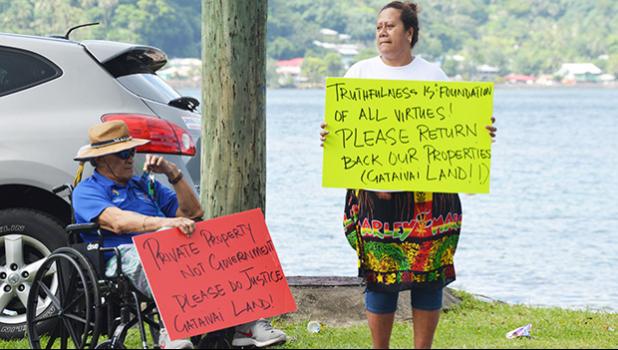 TRUTHFULNESS IS FOUNDATION
OF ALL VIRTUES!
PLEASE RETURN
BACK OUR PROPERTIES
(GATAIVAI LAND!!)
PRIVATE PROPERTY
NOT GOVERNMENT
PLEASE DO JUSTICE
GATAIVAI LAND!
MARLEY